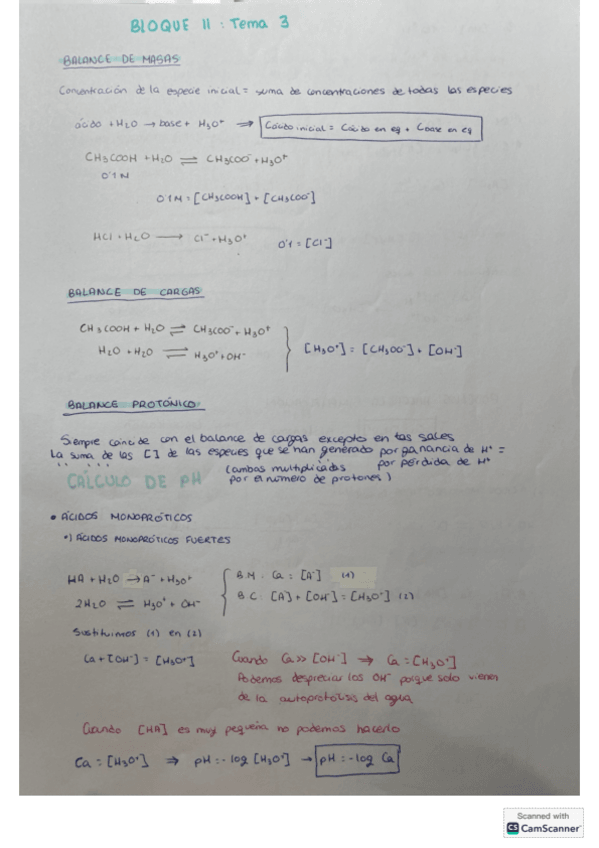 BLOQUE II : Tema 3
BALANCE DE MASAS
Concentración de la especie inicial = suma de concentraciones de todas las especies
ácido + H2O → base + H3O+ ⇒ Cácido inicial = Cácido en eq + Cbase en eq
CH3COOH + H2O ⇌ CH3COO- + H3O+
0'1 M
0'1 M = [CH3COOH] + [CH3COO-]
HCl + H2O → Cl- + H3O+ 0'1 = [Cl-]
BALANCE DE CARGAS
CH3COOH + H2O ⇌ CH3COO- + H3O+
H2O + H2O ⇌ H3O+ + OH-
[H3O+] = [CH3OO-] + [OH-]
BALANCE PROTÓNICO
Siempre coincide con el balance de cargas excepto en las sales
La suma de las [ ] de las especies que se han generado por ganancia de H+ =
por pérdida de H+
(ambas multiplicadas
por el número de protones)
CÁLCULO DE PH
• ÁCIDOS MONOPRÓTICOS
•) ÁCIDOS MONOPRÓTICOS FUERTES
HA + H2O → A- + H3O+ B.M. Ca = [A-] (1)
2H2O ⇌ H3O+ + OH- B.C: [A] + [OH-] = [H3O+] (2)
Sustituimos (1) en (2)
Ca + [OH-] = [H3O+] Cuando Ca >> [OH-] → Ca = [H3O+]
Podemos despreciar los OH- porque solo vienen
de la autoprotólisis del agua
Cuando [HA] es muy pequeña no podemos hacerlo
Ca = [H3O+] ⇒ pH = -log [H3O+] → pH = -log Ca
Scanned with
CS CamScanner